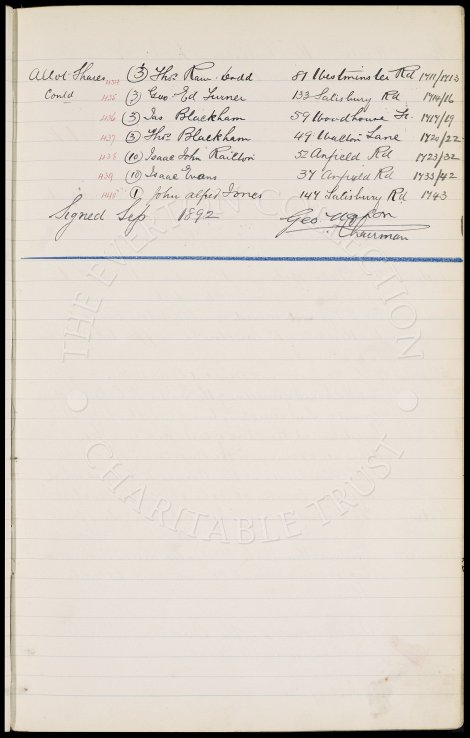 Allot Shares 434 (3) Thos. Raw. Dodd 81 Westminster Rd 1711/1713
Contd 435 (3) Geo. Ed Turner 132 Salisbury Rd 1714/16
436 (3) Jas Blackham 59 Woodhouse St. 1717/19
437 (3) Thos. Blackham 49 Walton Lane 1720/22
438 (10) Isaac John Railton 52 Anfield Rd 1723/32
439 (10) Isaac Evans 37 Anfield Rd 1733/42
440 (1) John Alfred Jones 147 Salisbury Rd 1743
Signed Sep. 1892 Geo. Mahon
Chairman
THE EVERTON COLLECTION
CHARITABLE TRUST